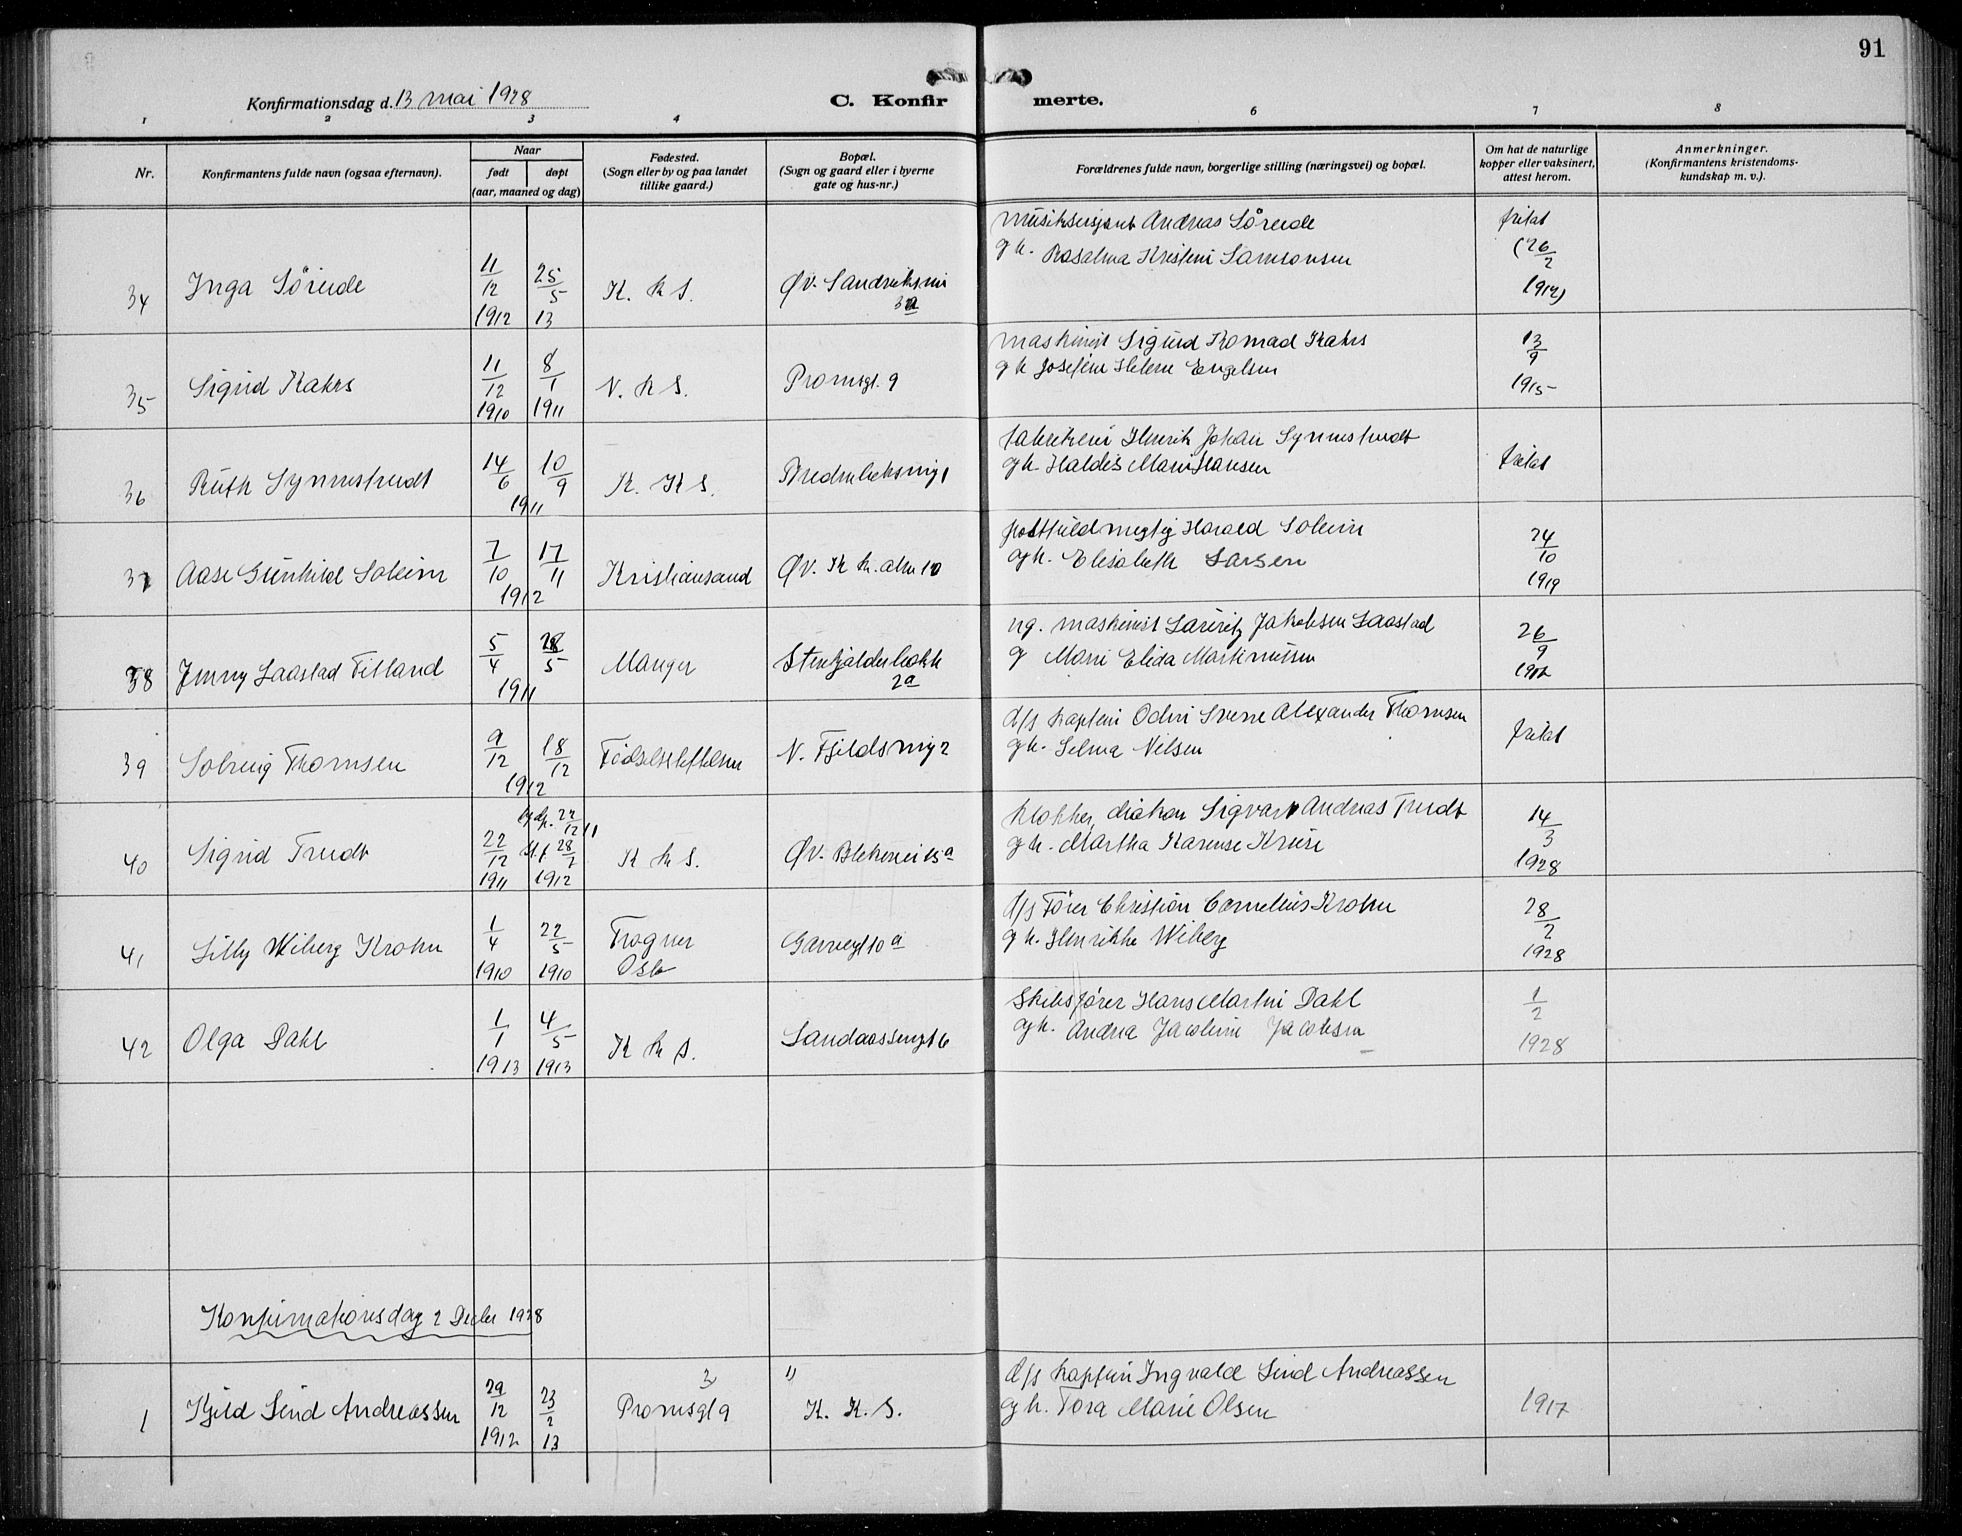 91
Konfirmationsdag d. 13 mai 1928
C. Konfirmerte.
1 2 3 4 6 7 8
Nr.
Konfirmantens fulde navn (ogsaa efternavn).
Naar
født døpt
(aar, maaned og dag)
Fødested.
(Sogn eller by og paa landet
tillike gaard.)
Bopæl.
(Sogn og gaard eller i byerne
gate og hus-nr.)
Forældrenes fulde navn, borgerlige stilling (næringsvei) og bopæl.
Om hat de naturlige
kopper eller vaksinert,
attest herom.
Anmerkninger.
(Konfirmantens kristendoms-
kundskap m. v.).
34 Inga Söreide 11/12 1912 25/5 13 K. K S. Øv.
Andreas Söreide
og h. Kristine Samsonsen
fritat (26/2
35 Sigrid Kahrs 11/12 1910 8/1 1911 N. K S. Promsgt. 9
maskinist Sigurd Konrad Kahrs
og h Josefine Helene Engelsen
13/9 1915
36 Ruth Synnestvedt 14/6 10/9 1911 K. K S.
Henrik Johan Synnestvedt
og h. Haldis Marie Hansen
fritat
37 Aase Gunhild Soleim 7/10 17/11 1912 Kristiansand Øv. K k. alm 10
postfuldmegtig Harald Soleim
og h. Elisabeth Larsen
24/10 1919
38 Jenny Laastad Fitland 5/4 28/5 1911 Manger Stenkjelderbakk 2a
maskinist Lauritz Jakobsen Laastad
og Marie Elida Martinussen
26/9 1912
39 Solveig Thomsen 9/12 18/12 1912 Födselsstiftelsen N. Fjeldsmg 2
d/s kaptein Odin Sverre Alexander Thomsen
og h. Selma Nilsen
fritat
40 Sigrid Tveidt 22/12 1911 hjdp. 22/12 11 st. f. 28/2 1912 K K S. Øv. Blekevei 15a
klokker, diakon Sigvart Andreas Tveidt
og h. Martha Karense Kruse
14/3 1928
41 Lilly Wiberg Krohn 1/4 1910 22/5 1910 Frogner Oslo Garvegt 10 a
d/s Fører Christian Cornelius Krohn
og h. Henrikke Wiberg
28/2 1928
42 Olga Dahl 1/1 1913 4/5 1913 K K S. Sandaassengt 6
Skibsfører Hans Martin Dahl
og h. Andrea Jacobine Jacobsen
1/2 1928
Konfirmationsdag 2 Decbr 1928
1 Kjeld Lind Andreassen 29/12 1912 23/2 13 Promsgt 9 K. K. S.
d/s kaptein Ingvald Lind Andreassen
og h. Tora Marie Olsen
1917